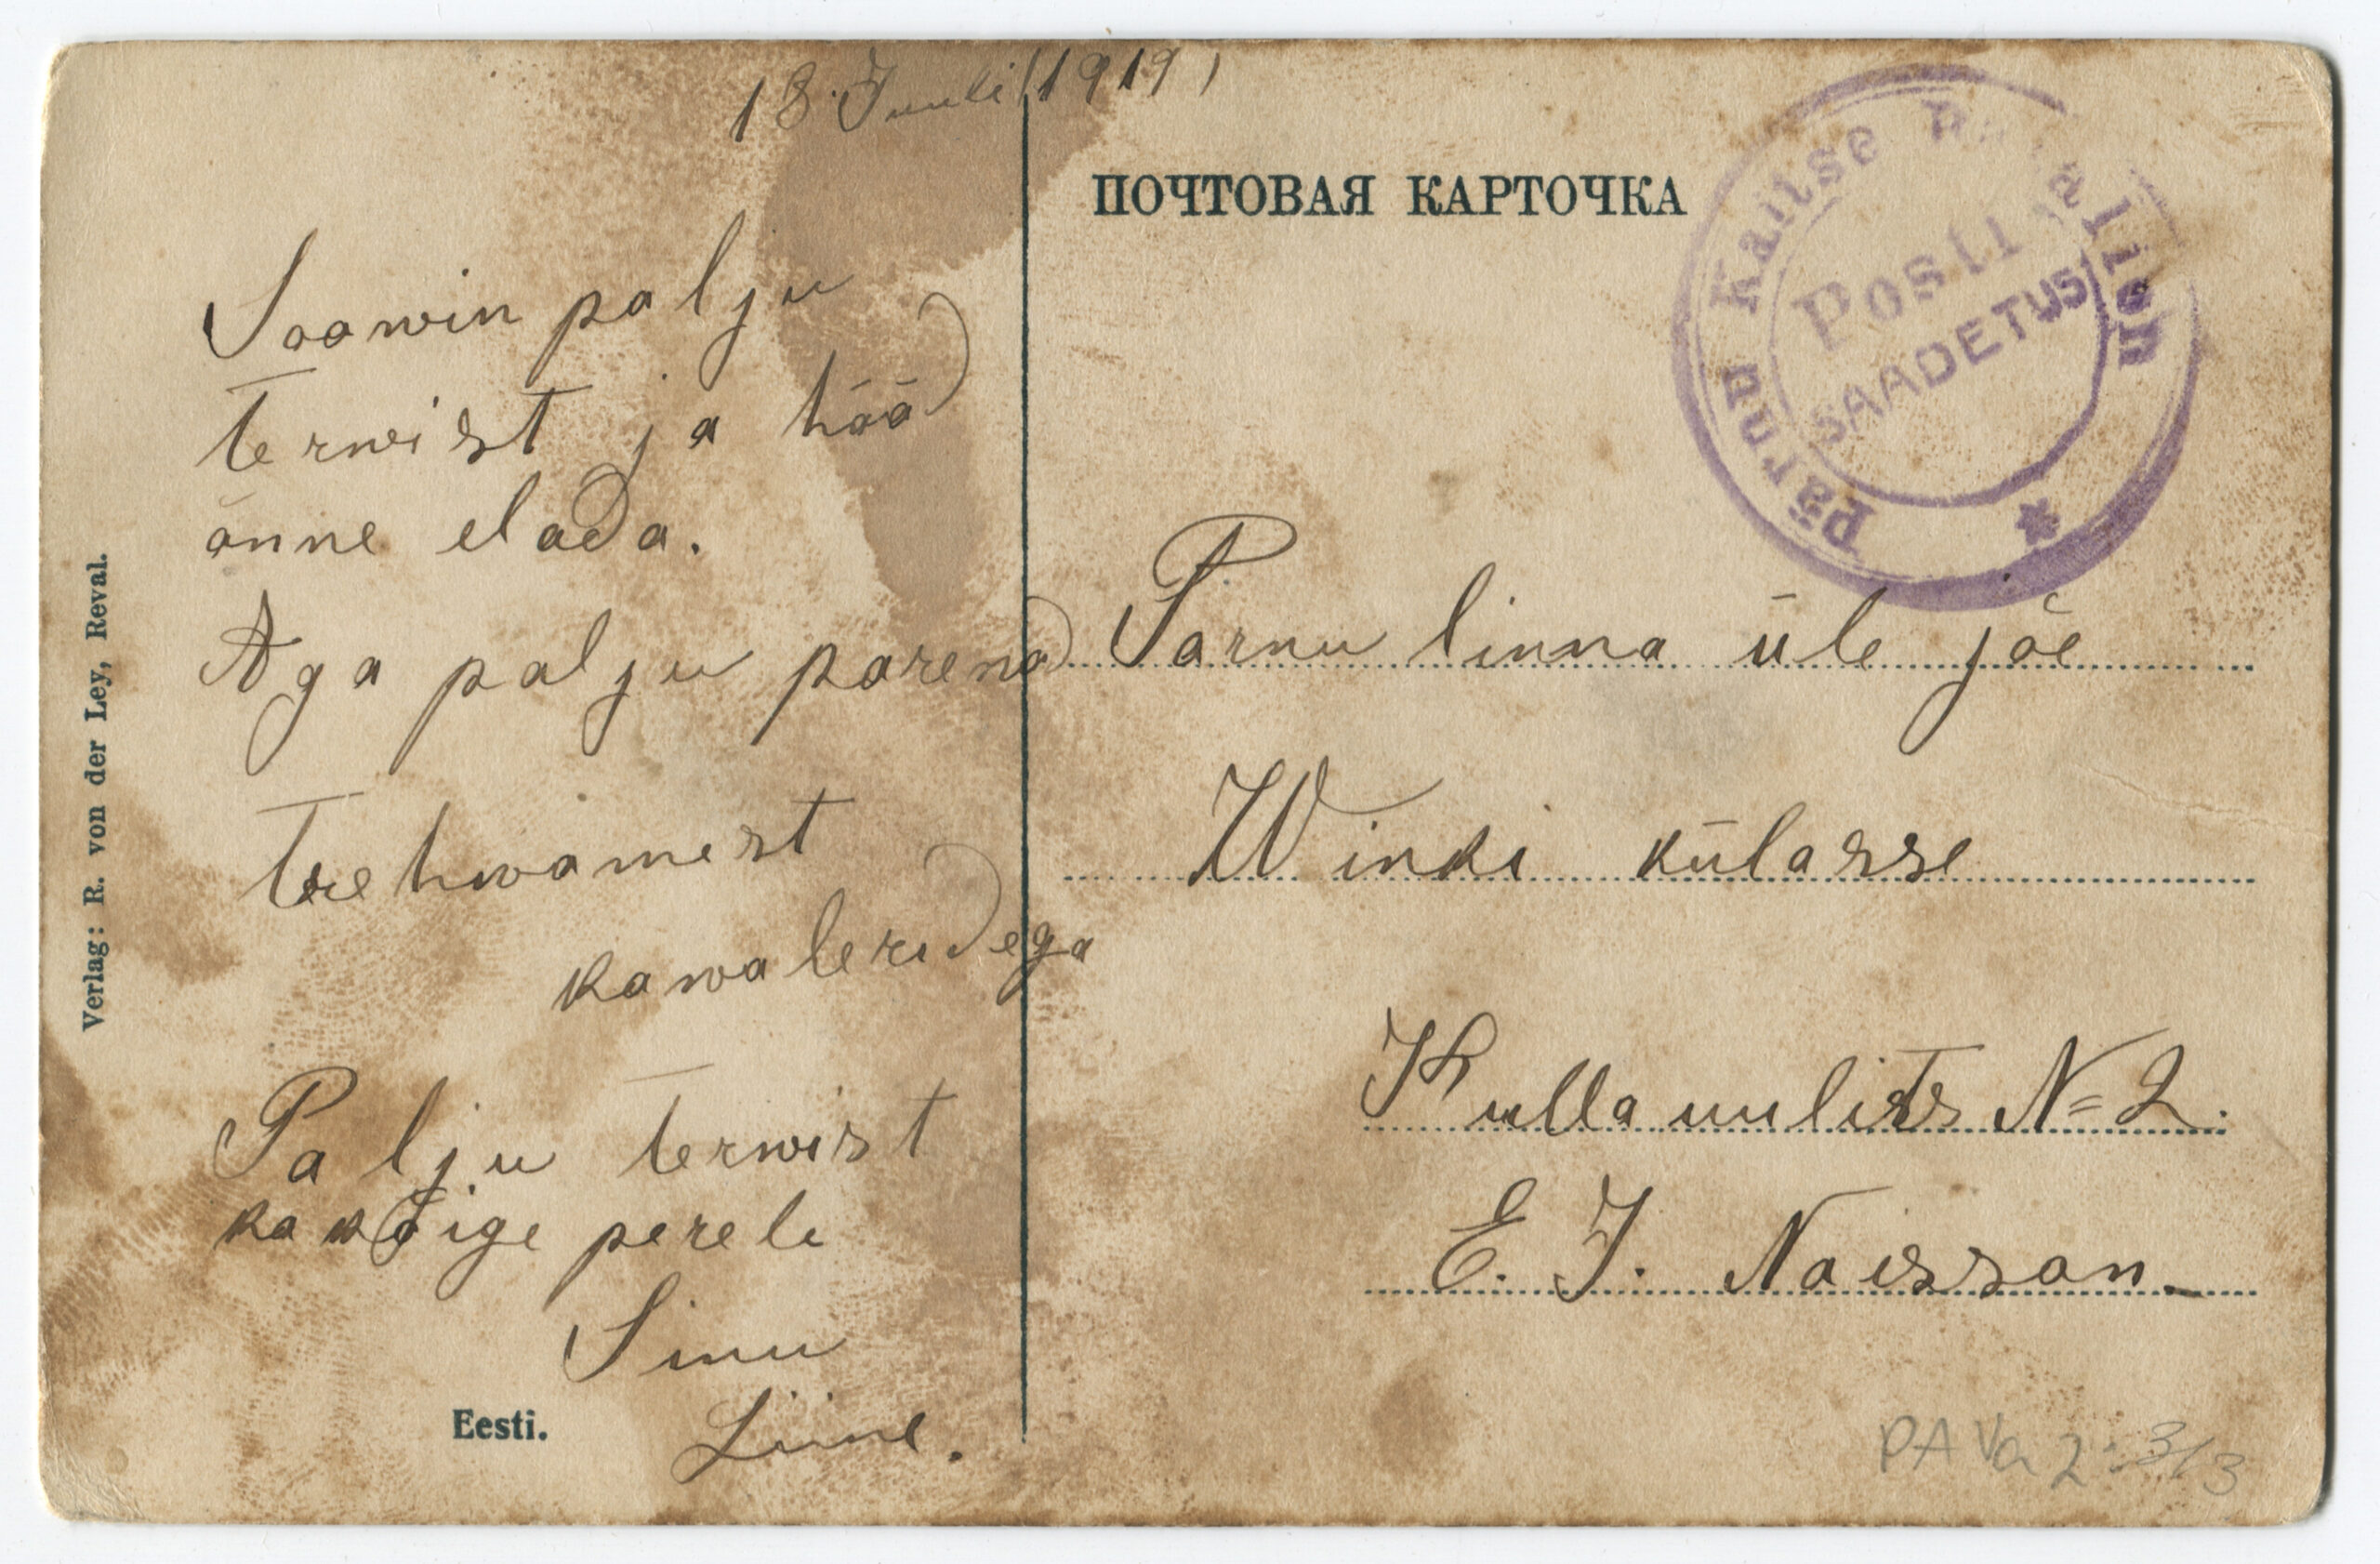 18. Juuli (1919)
Soowin palju
terwist ja hää
õnne elada.
Aga palju parema
kawaleridega
Palju terwist
perele
Sinu
Liine.
Eesti.
Verlag: R. von der Ley, Reval.
ПОЧТОВАЯ КАРТОЧКА
Pärnu Kaitse Pataljon
Posti
SAADETUS
Pärnu linna üle jõe
Winki külasse
Kulla uulits N=2.
E. J. Naissan.
PA Va 2:3/3